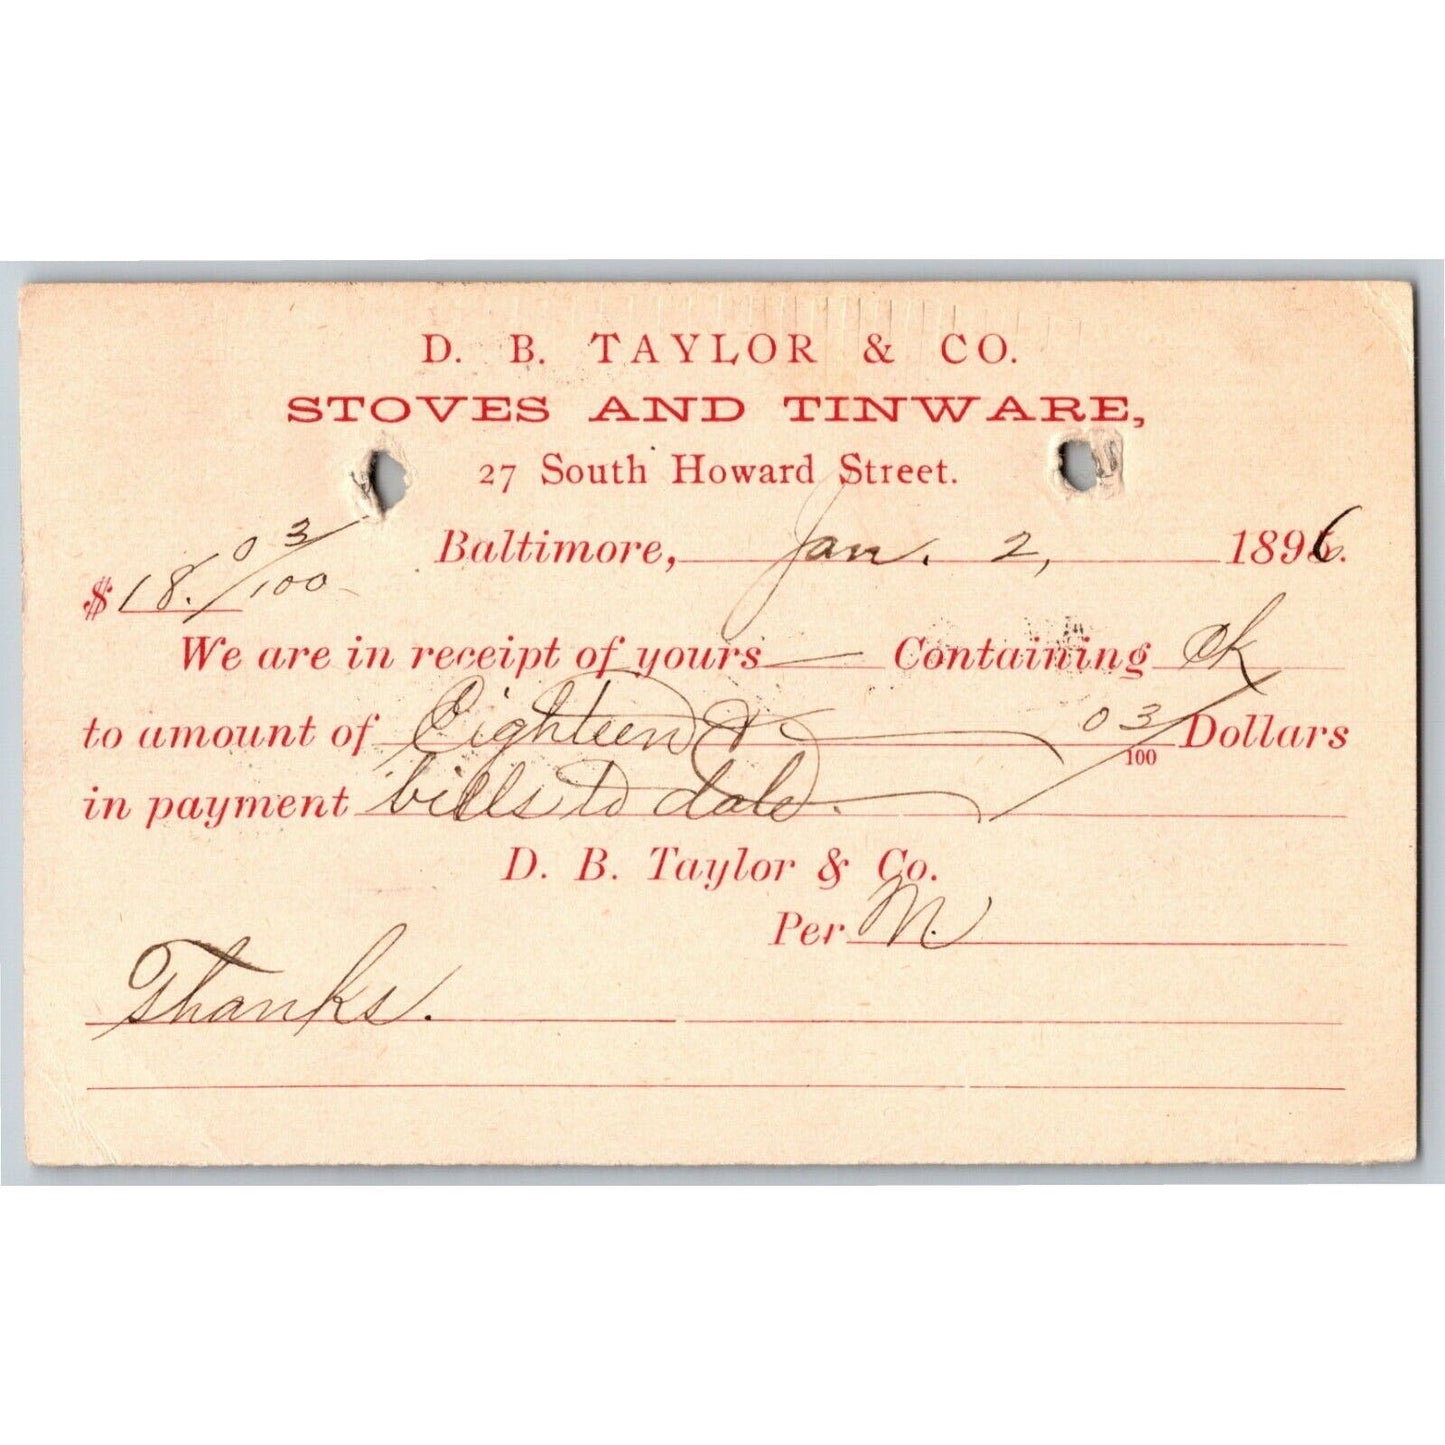 D. B. TAYLOR & CO.
STOVES AND TINWARE,
27 South Howard Street.
Baltimore, Jan. 2, 1896.
$18. 03/100
We are in receipt of yours — Containing Ck
to amount of Eighteen & 03/100 Dollars
in payment bills to date.
D. B. Taylor & Co.
Per M.
Thanks.